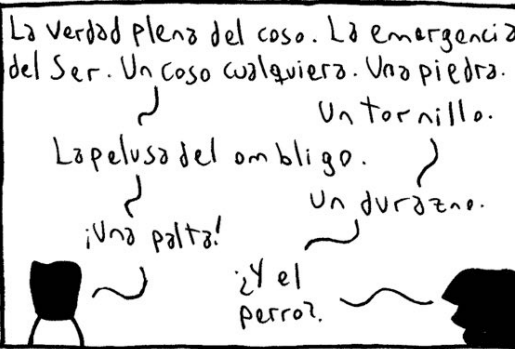 La verdad plena del coso. La emergencia
del Ser. Un coso cualquiera. Una piedra.
Un tornillo.
La pelusa del ombligo.
Un durazno.
¡Una palta!
¿Y el
perro?.